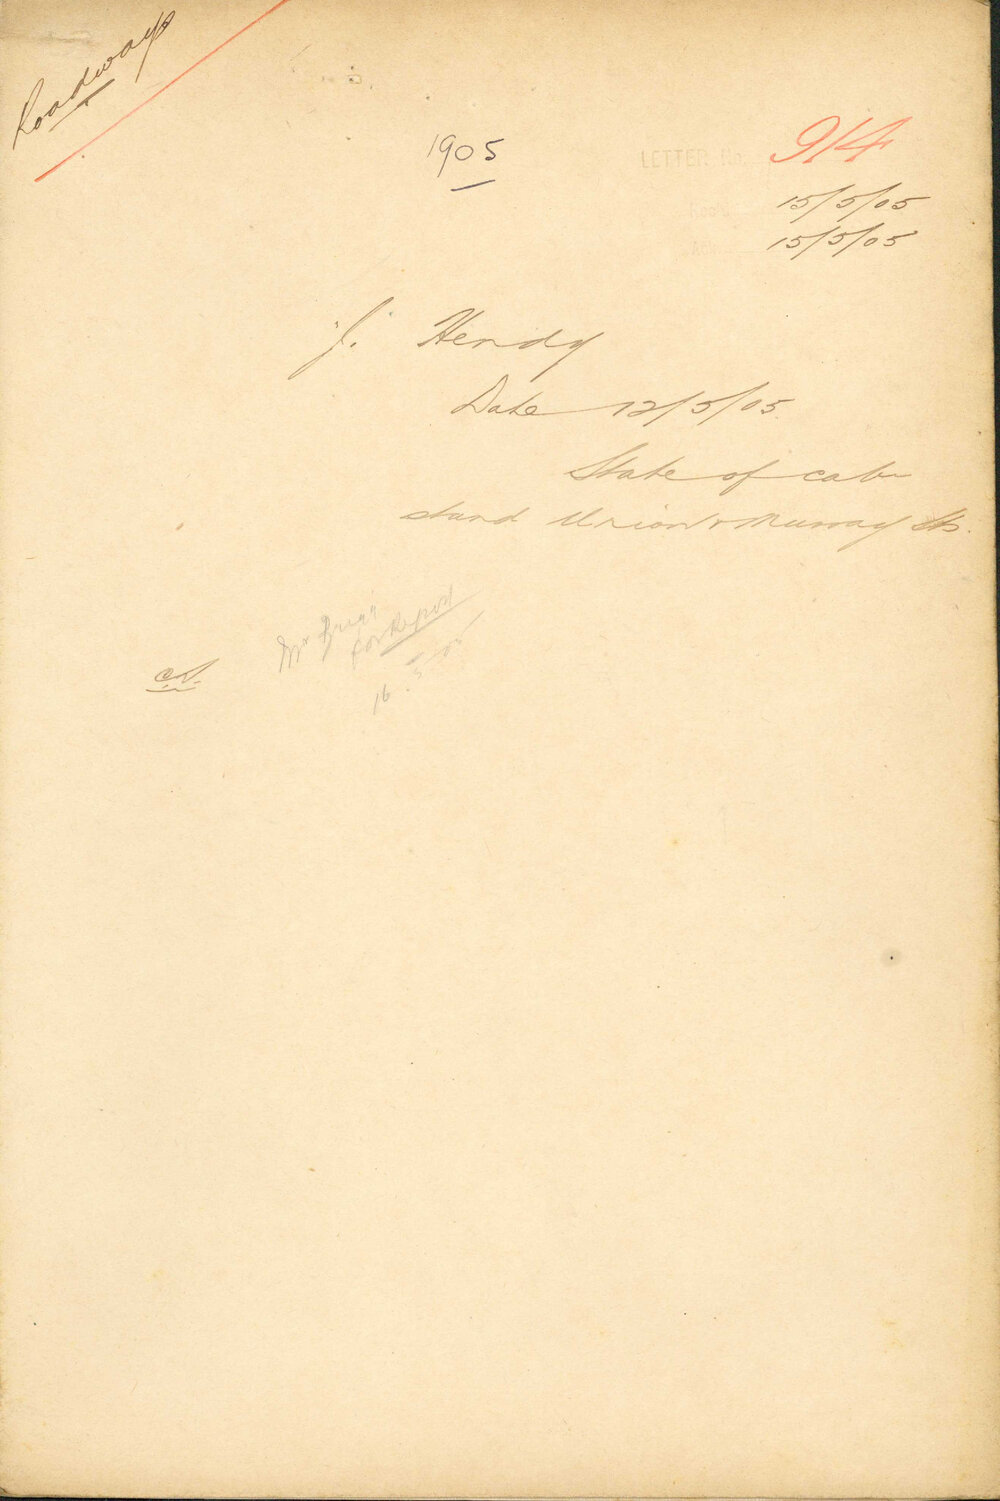 Roadways
1905
LETTER No. 914
Rec'd 15/5/05
15/5/05
"J." Hendy
Date 12/5/05.
State of cab
stand Union & Murray Sts.
Mr
for Report
16.5/05